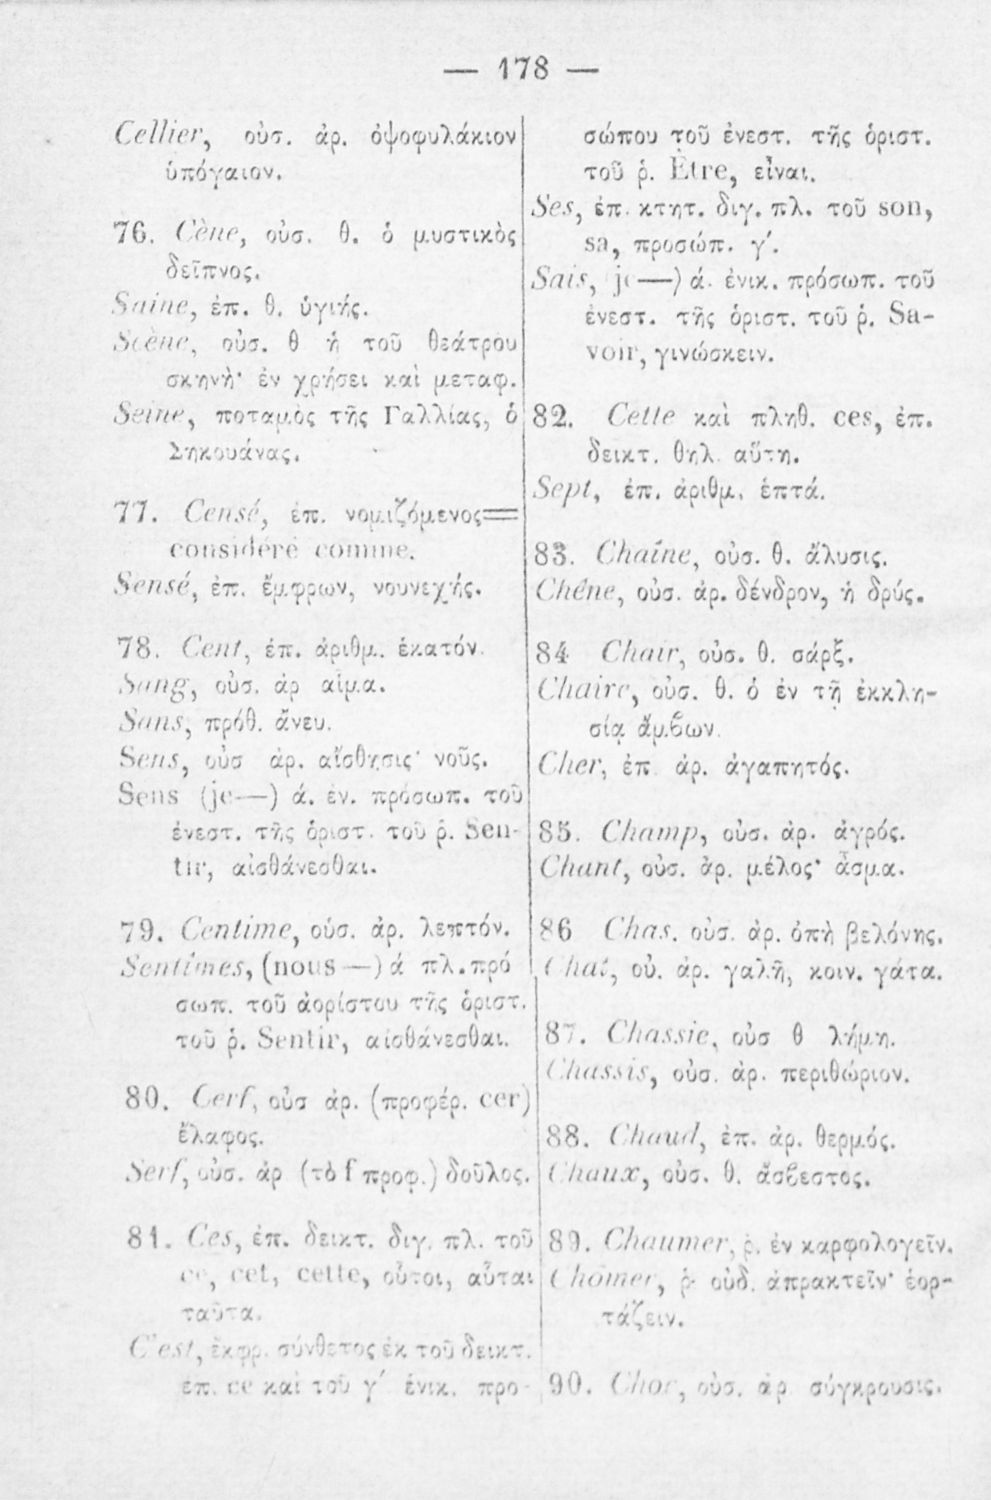 — 178 —
Cellier, οὐσ. ἀρ. ὀψοφυλάκιον
ὑπόγαιον.
76. Cène, οὐσ. θ. ὁ μυστικὸς
δεῖπνος.
Saine, ἐπ. θ. ὑγιής.
Scène, οὐσ. θ ἡ τοῦ θεάτρου
σκηνή· ἐν χρήσει καὶ μεταφ.
Seine, ποταμὸς τῆς Γαλλίας, ὁ
Σηκουάνας.
77. Censé, ἐπ. νομιζόμενος=
considéré comme.
Sensé, ἐπ. ἔμφρων, νουνεχής.
78. Cent, ἐπ. ἀριθμ. ἑκατόν.
Sang, οὐσ. ἀρ αἷμα.
Sans, πρόθ. ἄνευ.
Sens, οὐσ ἀρ. αἴσθησις· νοῦς.
Sens (je—) ά. ἐν. πρόσωπ. τοῦ
ἐνεστ. τῆς ὁριστ. τοῦ ῥ. Sen-
tir, αἰσθάνεσθαι.
79. Centime, οὐσ. ἀρ. λεπτόν.
Sentîmes, (nous—) ά πλ. πρό
σωπ. τοῦ ἀορίστου τῆς ὁριστ.
τοῦ ῥ. Sentir, αἰσθάνεσθαι.
80. Cerf, οὐσ ἀρ. (προφέρ. cer)
ἔλαφος.
Serf, οὐσ. ἀρ (τὸ f προφ.) δοῦλος.
81. Ces, ἐπ. δεικτ. διγ. πλ. τοῦ
ce, cet, cette, οὗτοι, αὗται
ταῦτα.
C'est, ἔκφρ. σύνθετος ἐκ τοῦ δεικτ.
ἐπ. ce καὶ τοῦ γ΄ ἑνικ. προ-
σώπου τοῦ ἐνεστ. τῆς ὁριστ.
τοῦ ῥ. Être, εἶναι.
Ses, ἐπ. κτητ. διγ. πλ. τοῦ son,
sa, προσώπ. γ΄.
Sais, je—) ά. ἑνικ. πρόσωπ. τοῦ
ἐνεστ. τῆς ὁριστ. τοῦ ῥ. Sa-
voir, γινώσκειν.
82. Cette καὶ πληθ. ces, ἐπ.
δεικτ. θηλ. αὕτη.
Sept, ἐπ. ἀριθμ. ἑπτά.
83. Chaîne, οὐσ. θ. ἅλυσις.
Chêne, οὐσ. ἀρ. δένδρον, ἡ δρύς.
84 Chair, οὐσ. θ. σάρξ.
Chaire, οὐσ. θ. ὁ ἐν τῇ ἐκκλη-
σίᾳ ἄμβων.
Cher, ἐπ ἀρ. ἀγαπητός.
85. Champ, οὐσ. ἀρ. ἀγρός.
Chant, οὐσ. ἀρ. μέλος· ᾆσμα.
86 Chas. οὐσ. ἀρ. ὀπὴ βελόνης.
Chat, οὐ. ἀρ. γαλῆ, κοιν. γάτα.
87. Chassie, οὐσ θ λήμη.
Chassis, οὐσ. ἀρ. περιθώριον.
88. Chaud, ἐπ. ἀρ. θερμός.
Chaux, οὐσ. θ. ἄσβεστος.
89. Chaumer, ῥ. ἐν καρφολογεῖν.
Chômer, ῥ· οὐδ. ἀπρακτεῖν· ἑορ-
τάζειν.
90. Choc, οὐσ. ἀρ σύγκρουσις.